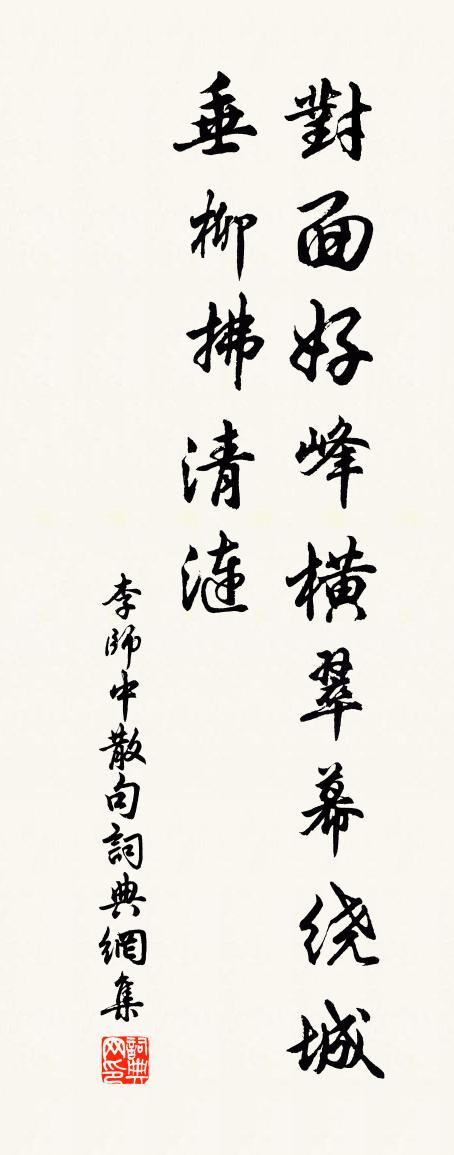 對面好峰橫翠幕绕城
垂柳拂清漣
李師中散句詞典網集
詞典网印